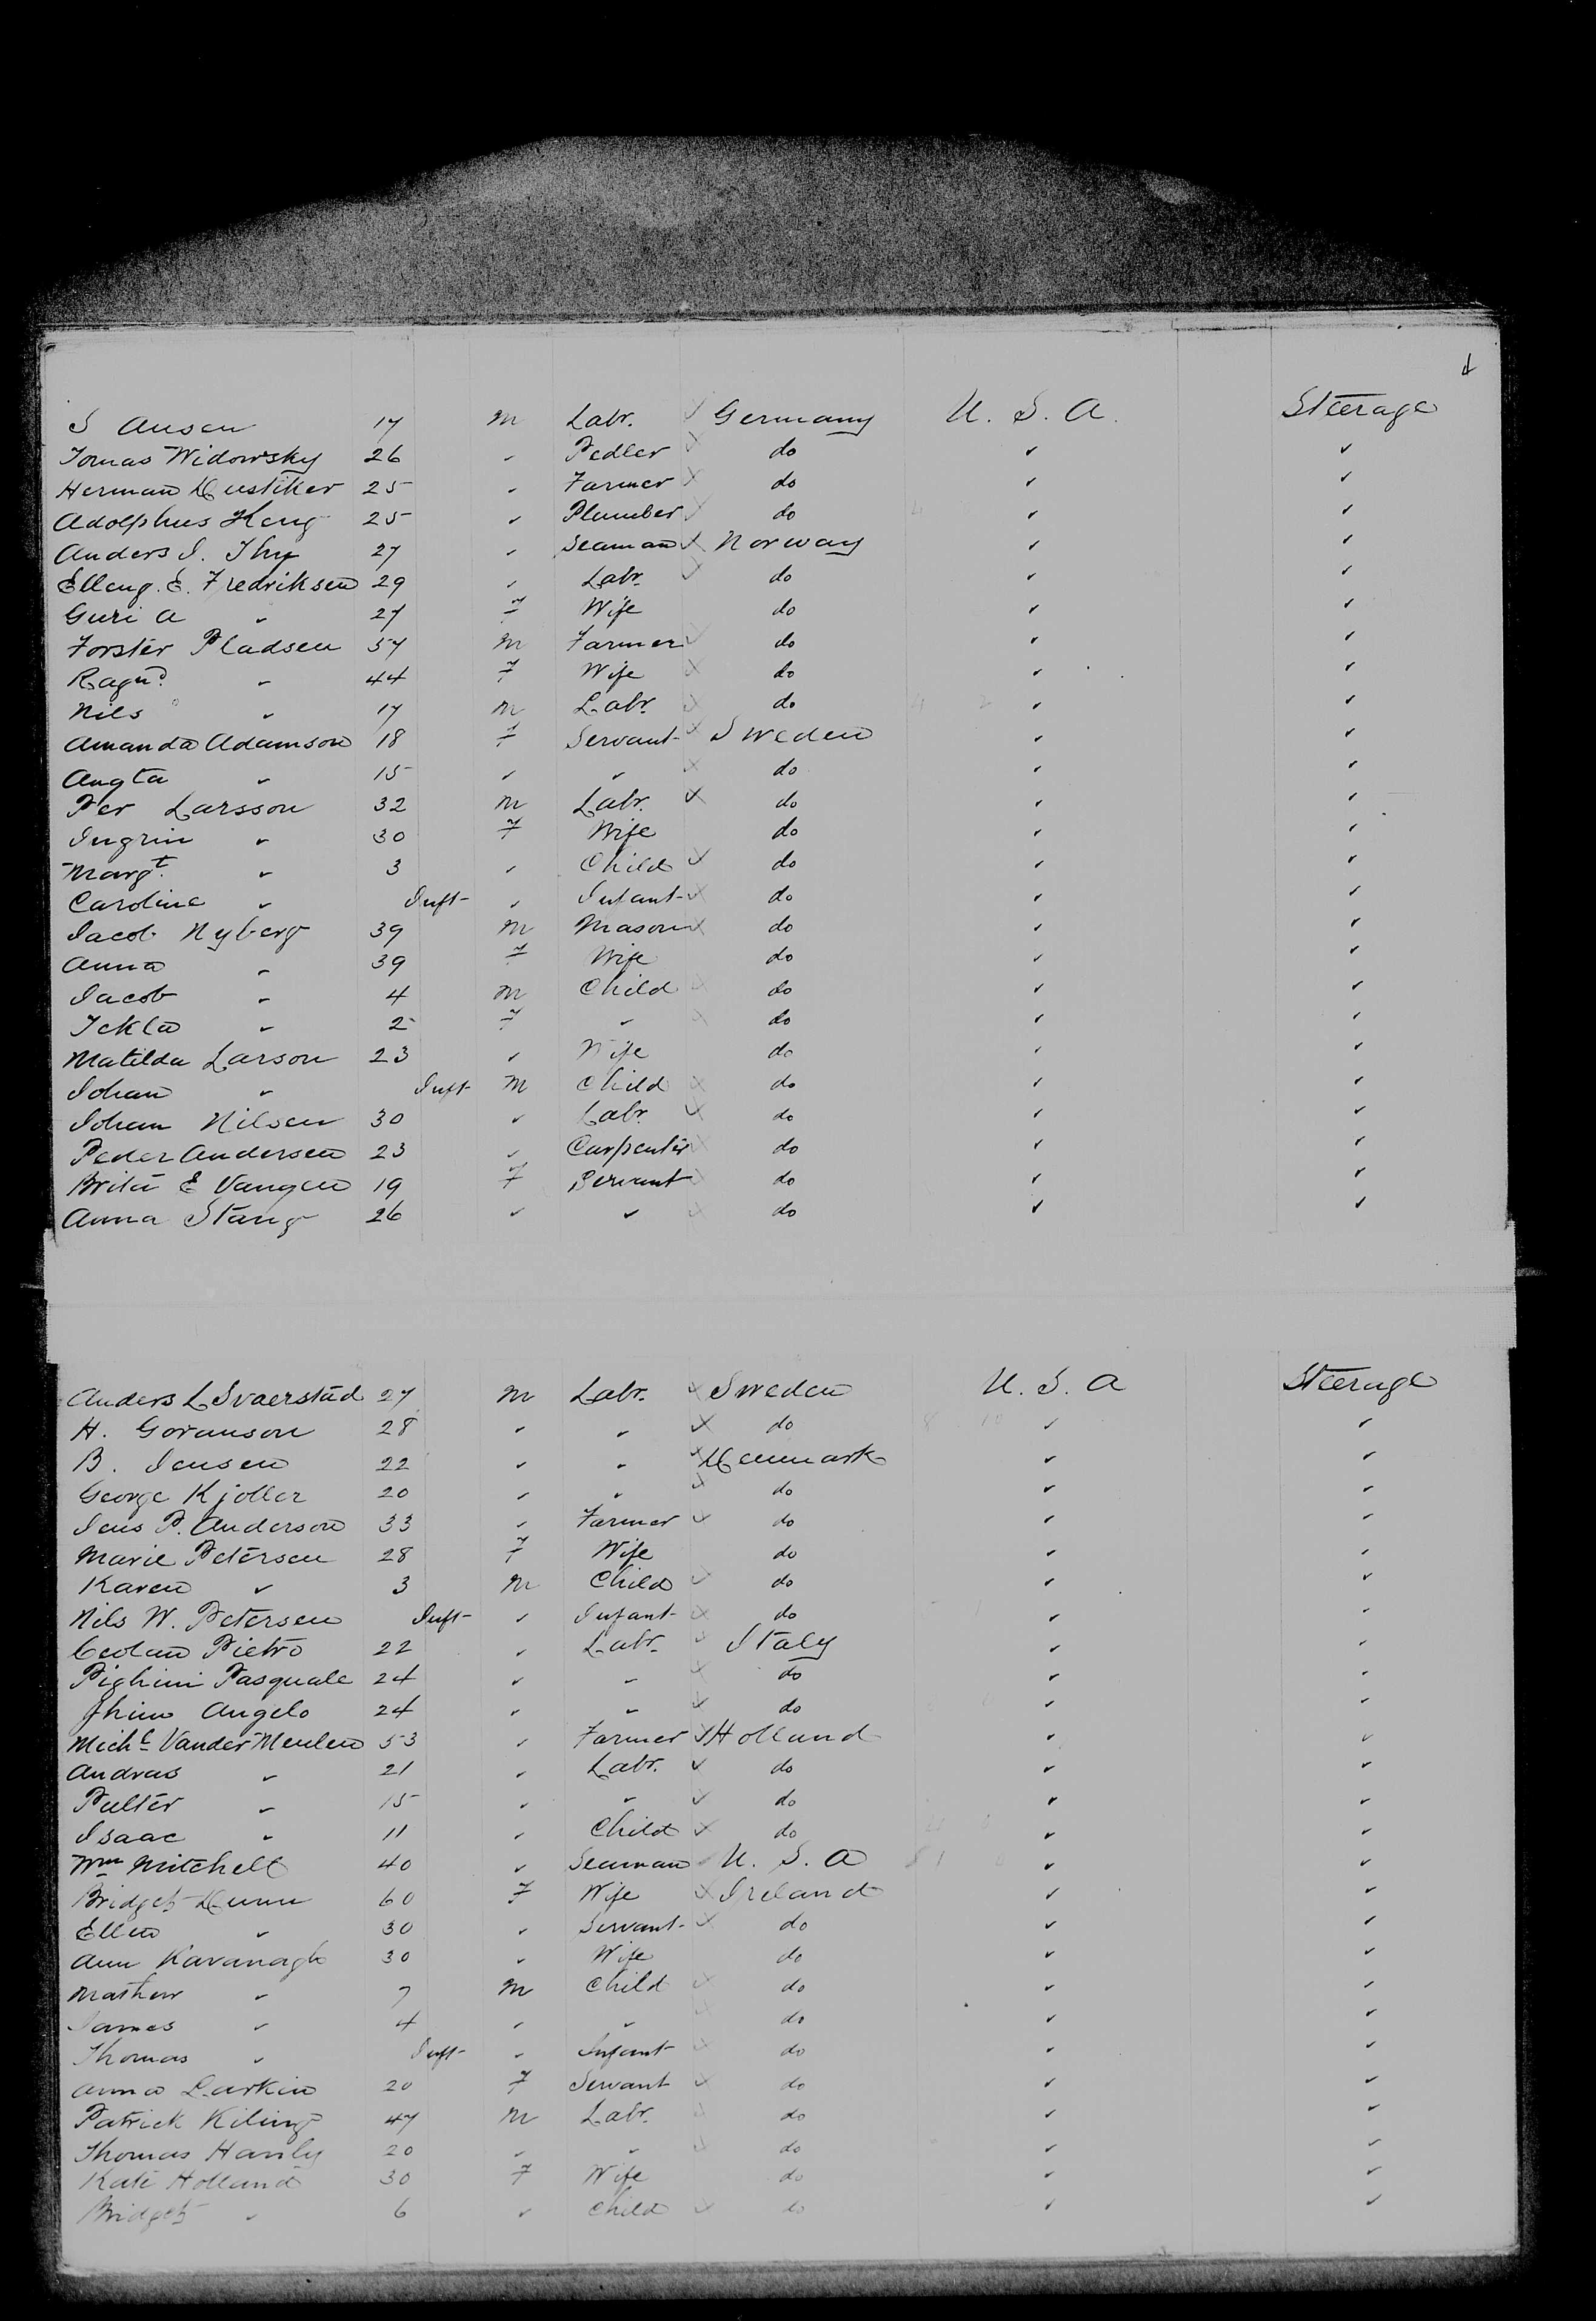 4
S Ausen 17 m Labr. Germany U. S. A. Steerage
Tomas Widowsky 26 " Pedler do " "
Herman Dustiker 25 " Farmer do " "
Adolphus Keng 25 " Plumber do " "
Anders I. Thy 27 " Seaman Norway " "
Elleng. E. Fredriksen 29 " Labr. do " "
Guri A " 27 F Wife do " "
Torster Pladsen 57 m Farmer do " "
Ragnd. " 44 F Wife do " "
Nils " 17 m Labr. do " "
Amanda Adamson 18 F Servant Sweden " "
Augta " 15 " " do " "
Per Larsson 32 m Labr. do " "
Ingrin " 30 F Wife do " "
Margt. " 3 " Child do " "
Caroline " Inft " Infant do " "
Jacob Nyberg 39 m Mason do " "
Anna " 39 F Wife do " "
Jacob " 4 m Child do " "
Tekla " 2 F " do " "
Matilda Larson 23 " Wife do " "
Johan " Inft m Child do " "
Johan Nilsen 30 " Labr. do " "
Peder Andersen 23 " Carpenter do " "
Brita E Vangen 19 F Servant do " "
Anna Stang 26 " " do " "
Anders L Svaerstad 27 m Labr. Sweden U. S. A Steerage
H. Goranson 28 " " do " "
B. Jensen 22 " " Denmark " "
George Kjoller 20 " " do " "
Jens P. Anderson 33 " Farmer do " "
Marie Petersen 28 F Wife do " "
Karen " 3 m Child do " "
Nils W. Petersen Inft " Infant do " "
Ceolan Pietro 22 " Labr. Italy " "
Pighini Pasquale 24 " " do " "
Angelo 24 " " do " "
Michl Vander Meulen 53 " Farmer Holland " "
Andras " 21 " Labr. do " "
Pulter " 15 " " do " "
Isaac " 11 " Child do " "
Wm Mitchell 40 " Seaman U. S. A " "
Bridget Dunn 60 F Wife Ireland " "
Ellen " 30 " Servant do " "
Ann Kavanagh 30 " Wife do " "
Mathew " 7 m Child do " "
James " 4 " " do " "
Thomas " Inft " Infant do " "
Anna Larkin 20 F Servant do " "
Patrick Kiling 47 m Labr. do " "
Thomas Hanly 20 " " do " "
Kate Holland 30 F Wife do " "
Bridget " 6 " Child do " "